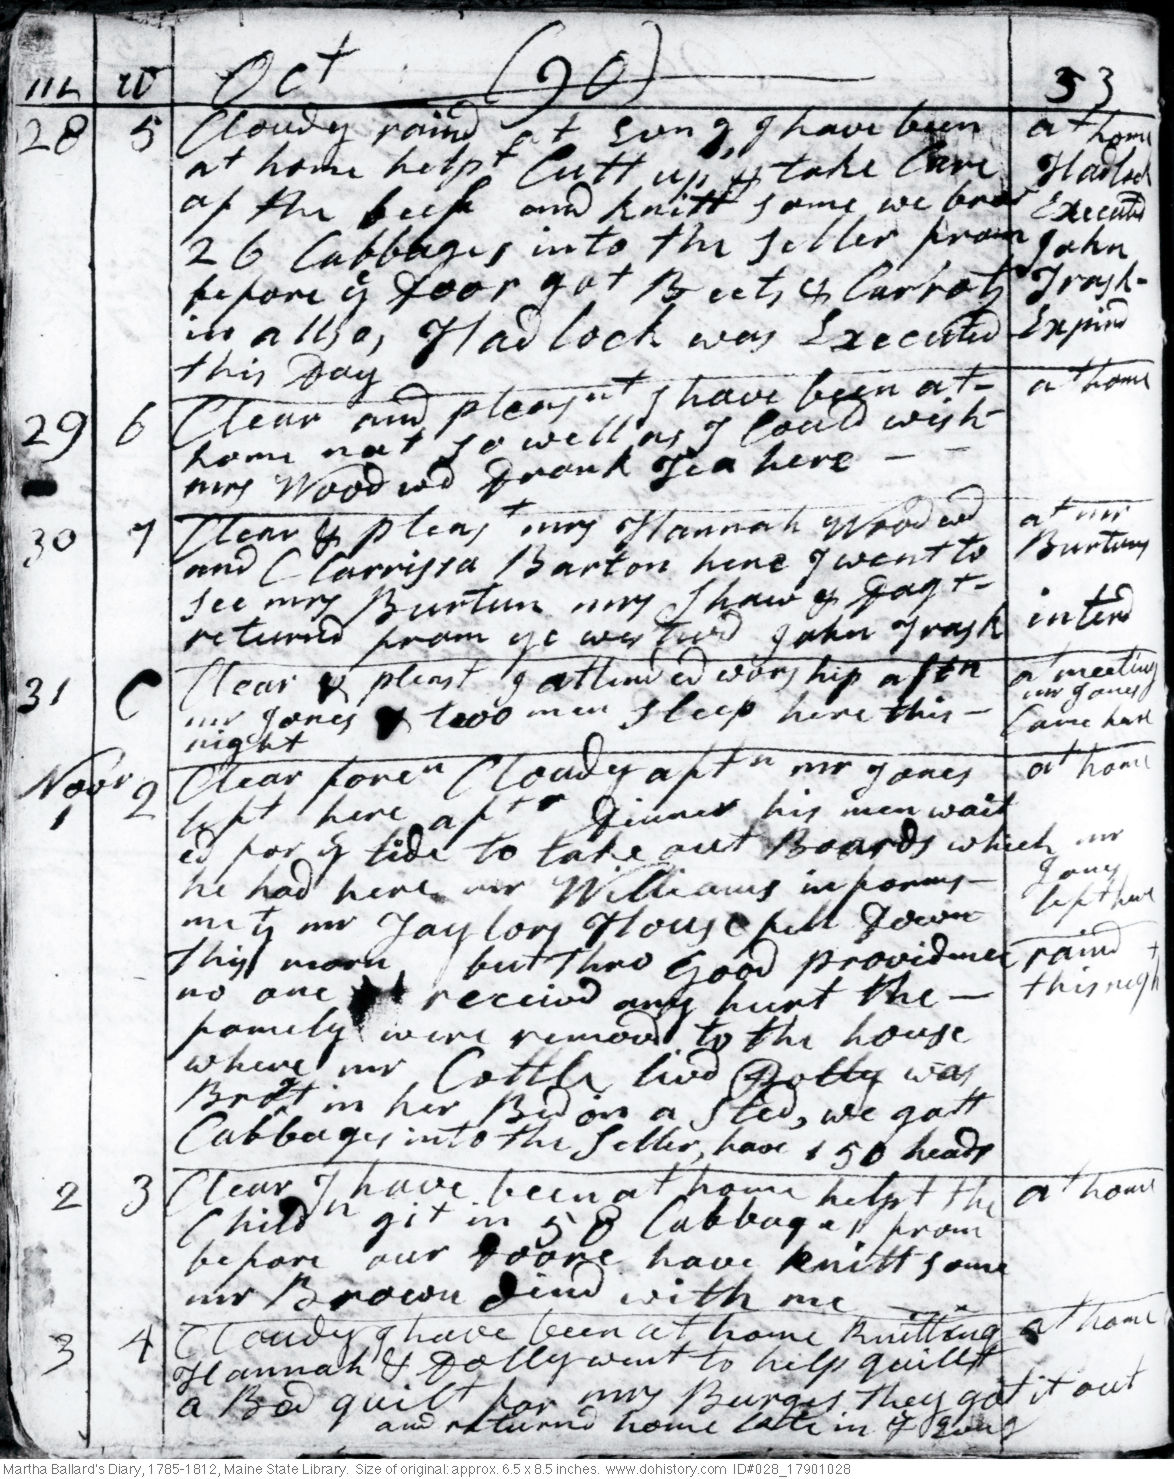 m w Oct (90) 53
28 5 Cloudy raind at Evng, I have been at home
at home helpt Cutt up & take Care Hadlock
of the beef and knitt some we brot Executed
26 Cabbages into the Seller from John
before ye Door got Beets & Carrots Trask
in allso, Hadlock was Executed Expird
this Day
29 6 Clear and pleasnt I have been at- at home
home not so well as I Could wish-
mrs Woodwd Drank Tea here - -
30 7 Clear & pleast mrs Hannah Woodwd at mr
and Clarrissa Barton here I went to Burtuns
see mrs Burtun mrs Shaw & Dagt-
returnd from ye westwd John Trask interd
31 C Clear & pleast I attended worship aftn at meeting
mr Jones & twoo men sleep here this- mr Jones
night Came here
Novr 1 2 Clear foren Cloudy aftn mr Jones at home
left here aftr Dinner his men wait
ed for ye tide to take out Boards which mr
he had here mr Williams informs- Jones
me ye mr Taylors House fell Down left here
this morn, but thro Good providence raind
no one receivd any hurt the - this nigh
famely were removd to the house
where mr Cottle livd Polly was
Brot in her Bed on a Sled, we gatt
Cabbages into the Seller, have 150 heads
2 3 Clear I have been at home helpt the at home
Childn git in 58 Cabbages from
before our Doore have knitt some
mr Brown dind with me
3 4 Cloudy I have been at home knitting at home
Hannah & Dolly went to help quillt
a Bed quilt for mrs Burges they got it out
and returnd home late in ye Evng
Martha Ballard's Diary, 1785-1812, Maine State Library. Size of original: approx. 6.5 x 8.5 inches. www.dohistory.com ID#028_17901028